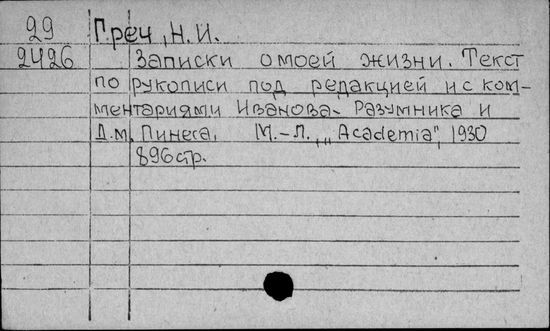 29 Греч, Н.И.
2426 Записки о моей жизни. Текст
по рукописи под редакцией и с ком-
ментариями Иванова-Разумника и
Д.М. Пинеса. М.-Л., „Academia", 1930
896 стр.